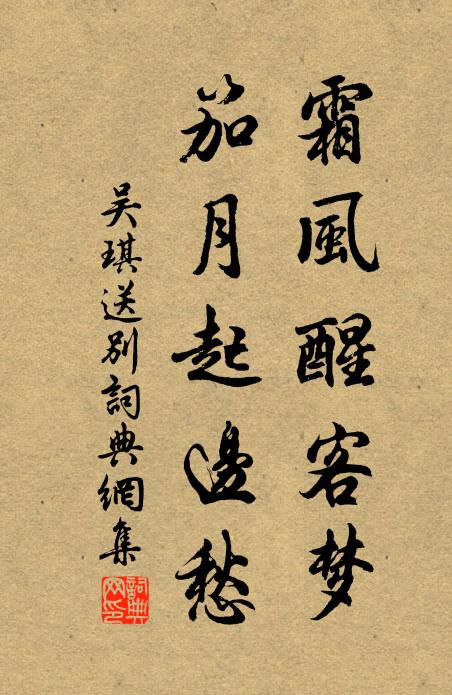 霜風醒客梦
笳月起邊愁
吴琪送别詞典網集
詞典網印